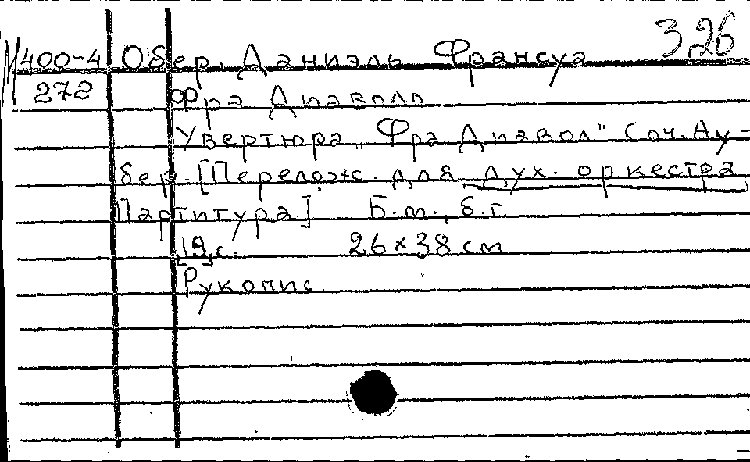 3.26
М400-4 Обер, Даниэль Франсуа
272 Фра Диаволь
Увертюра „Фра Диавол" Соч. Ау-
бер. [Перелож. для дух. оркестра
Партитура] Б.м., б.г.
[19]с. 26×38 см
Рукопис